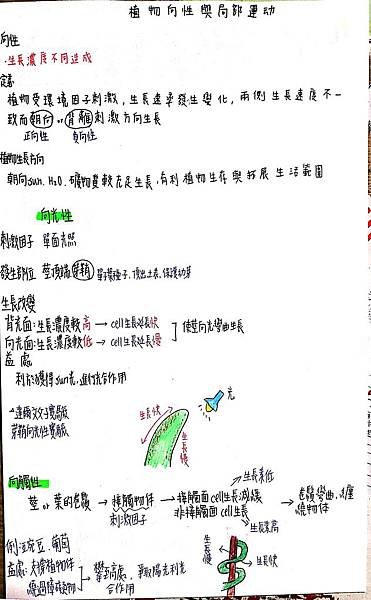 植物向性與局部運動
向性
·生長濃度不同造成
定義
植物受環境因子刺激,生長速率發生變化,兩側生長速度不一
致而朝向or背離刺激方向生長
正向性 負向性
植物生長方向
朝向sun、H₂O、礦物質較充足生長,有利植物生存與拓展生活範圍
向光性
刺激因子 單面光照
發生部位 莖頂端
生長改變
背光面:生長濃度較高→cell生長快
向光面:生長濃度較低→cell生長慢
使莖向光彎曲生長
益處
利於獲得sun光,進行光合作用
達爾文父子實驗
芽鞘向光性實驗
光
生長快
生長慢
向觸性
莖or葉的卷鬚→接觸物件→接觸面cell生長減緩
非接觸面cell生長
刺激因子
生長素低
生長素高
卷鬚彎曲,纏
繞物件
例:豌豆、葡萄
益處:支撐植物件
攀至高處,爭取陽光利光
合作用
生長慢
生長快